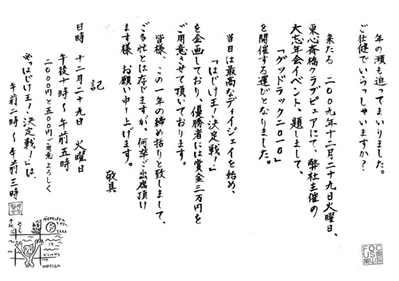 年の瀬も迫ってまいりました。
ご壮健でいらっしゃいますか?
来たる 二〇〇九年十二月二十九日火曜日、
東心斎橋クラブピュアにて、弊社主催の
大忘年会イベント、題しまして、
「グッドラック二〇一〇」
を開催する運びとなりました。
当日は最高なディイジェイを始め、
「はじけ王!決定戦!」
を企画しており、優勝者には賞金三万円を
ご用意させて頂いております。
皆様、この一年の締め括りと致しまして、
ご多忙とは存じますが、何卒ご出席頂け
ます様お願い申し上げます。
敬具
記
日時 十二月二十九日 火曜日
午後十時〜午前五時
二〇〇〇円と五〇〇円ご用意よろしく
※「はじけ王!決定戦!」は、
午前二時〜午前三時
FOC
US